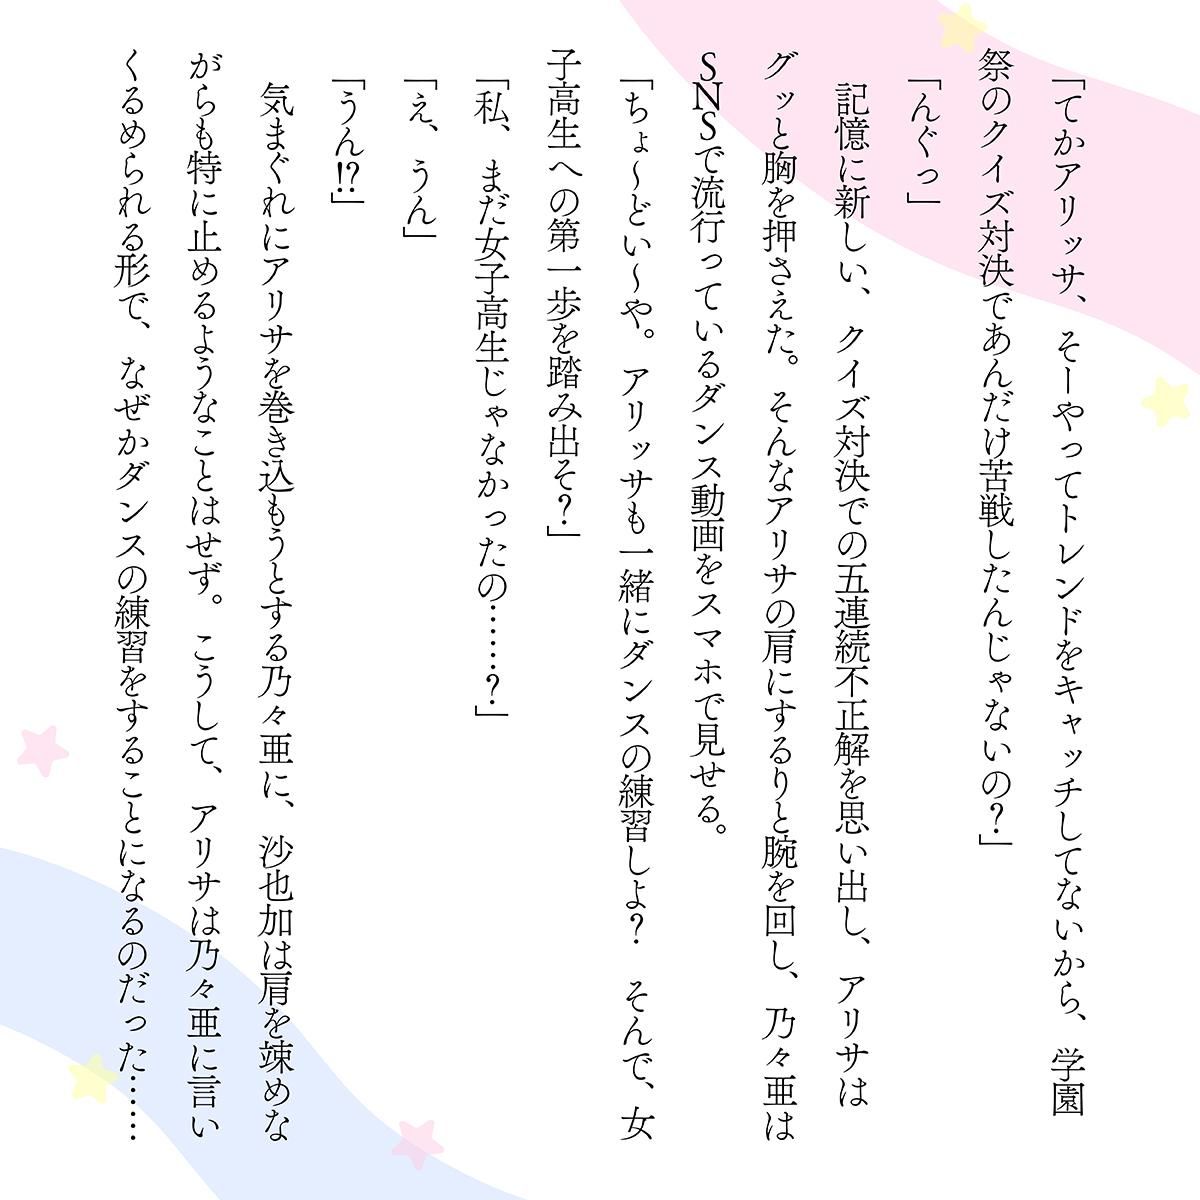 「てかアリッサ、そーやってトレンドをキャッチしてないから、学園
祭のクイズ対決であんだけ苦戦したんじゃないの？」
「んぐっ」
記憶に新しい、クイズ対決での五連続不正解を思い出し、アリサは
グッと胸を押さえた。そんなアリサの肩にするりと腕を回し、乃々亜は
SNSで流行っているダンス動画をスマホで見せる。
「ちょ～どい～や。アリッサも一緒にダンスの練習しよ？　そんで、女
子高生への第一歩を踏み出そ？」
「私、まだ女子高生じゃなかったの……？」
「え、うん」
「うん!?」
気まぐれにアリサを巻き込もうとする乃々亜に、沙也加は肩を竦めな
がらも特に止めるようなことはせず。こうして、アリサは乃々亜に言い
くるめられる形で、なぜかダンスの練習をすることになるのだった……